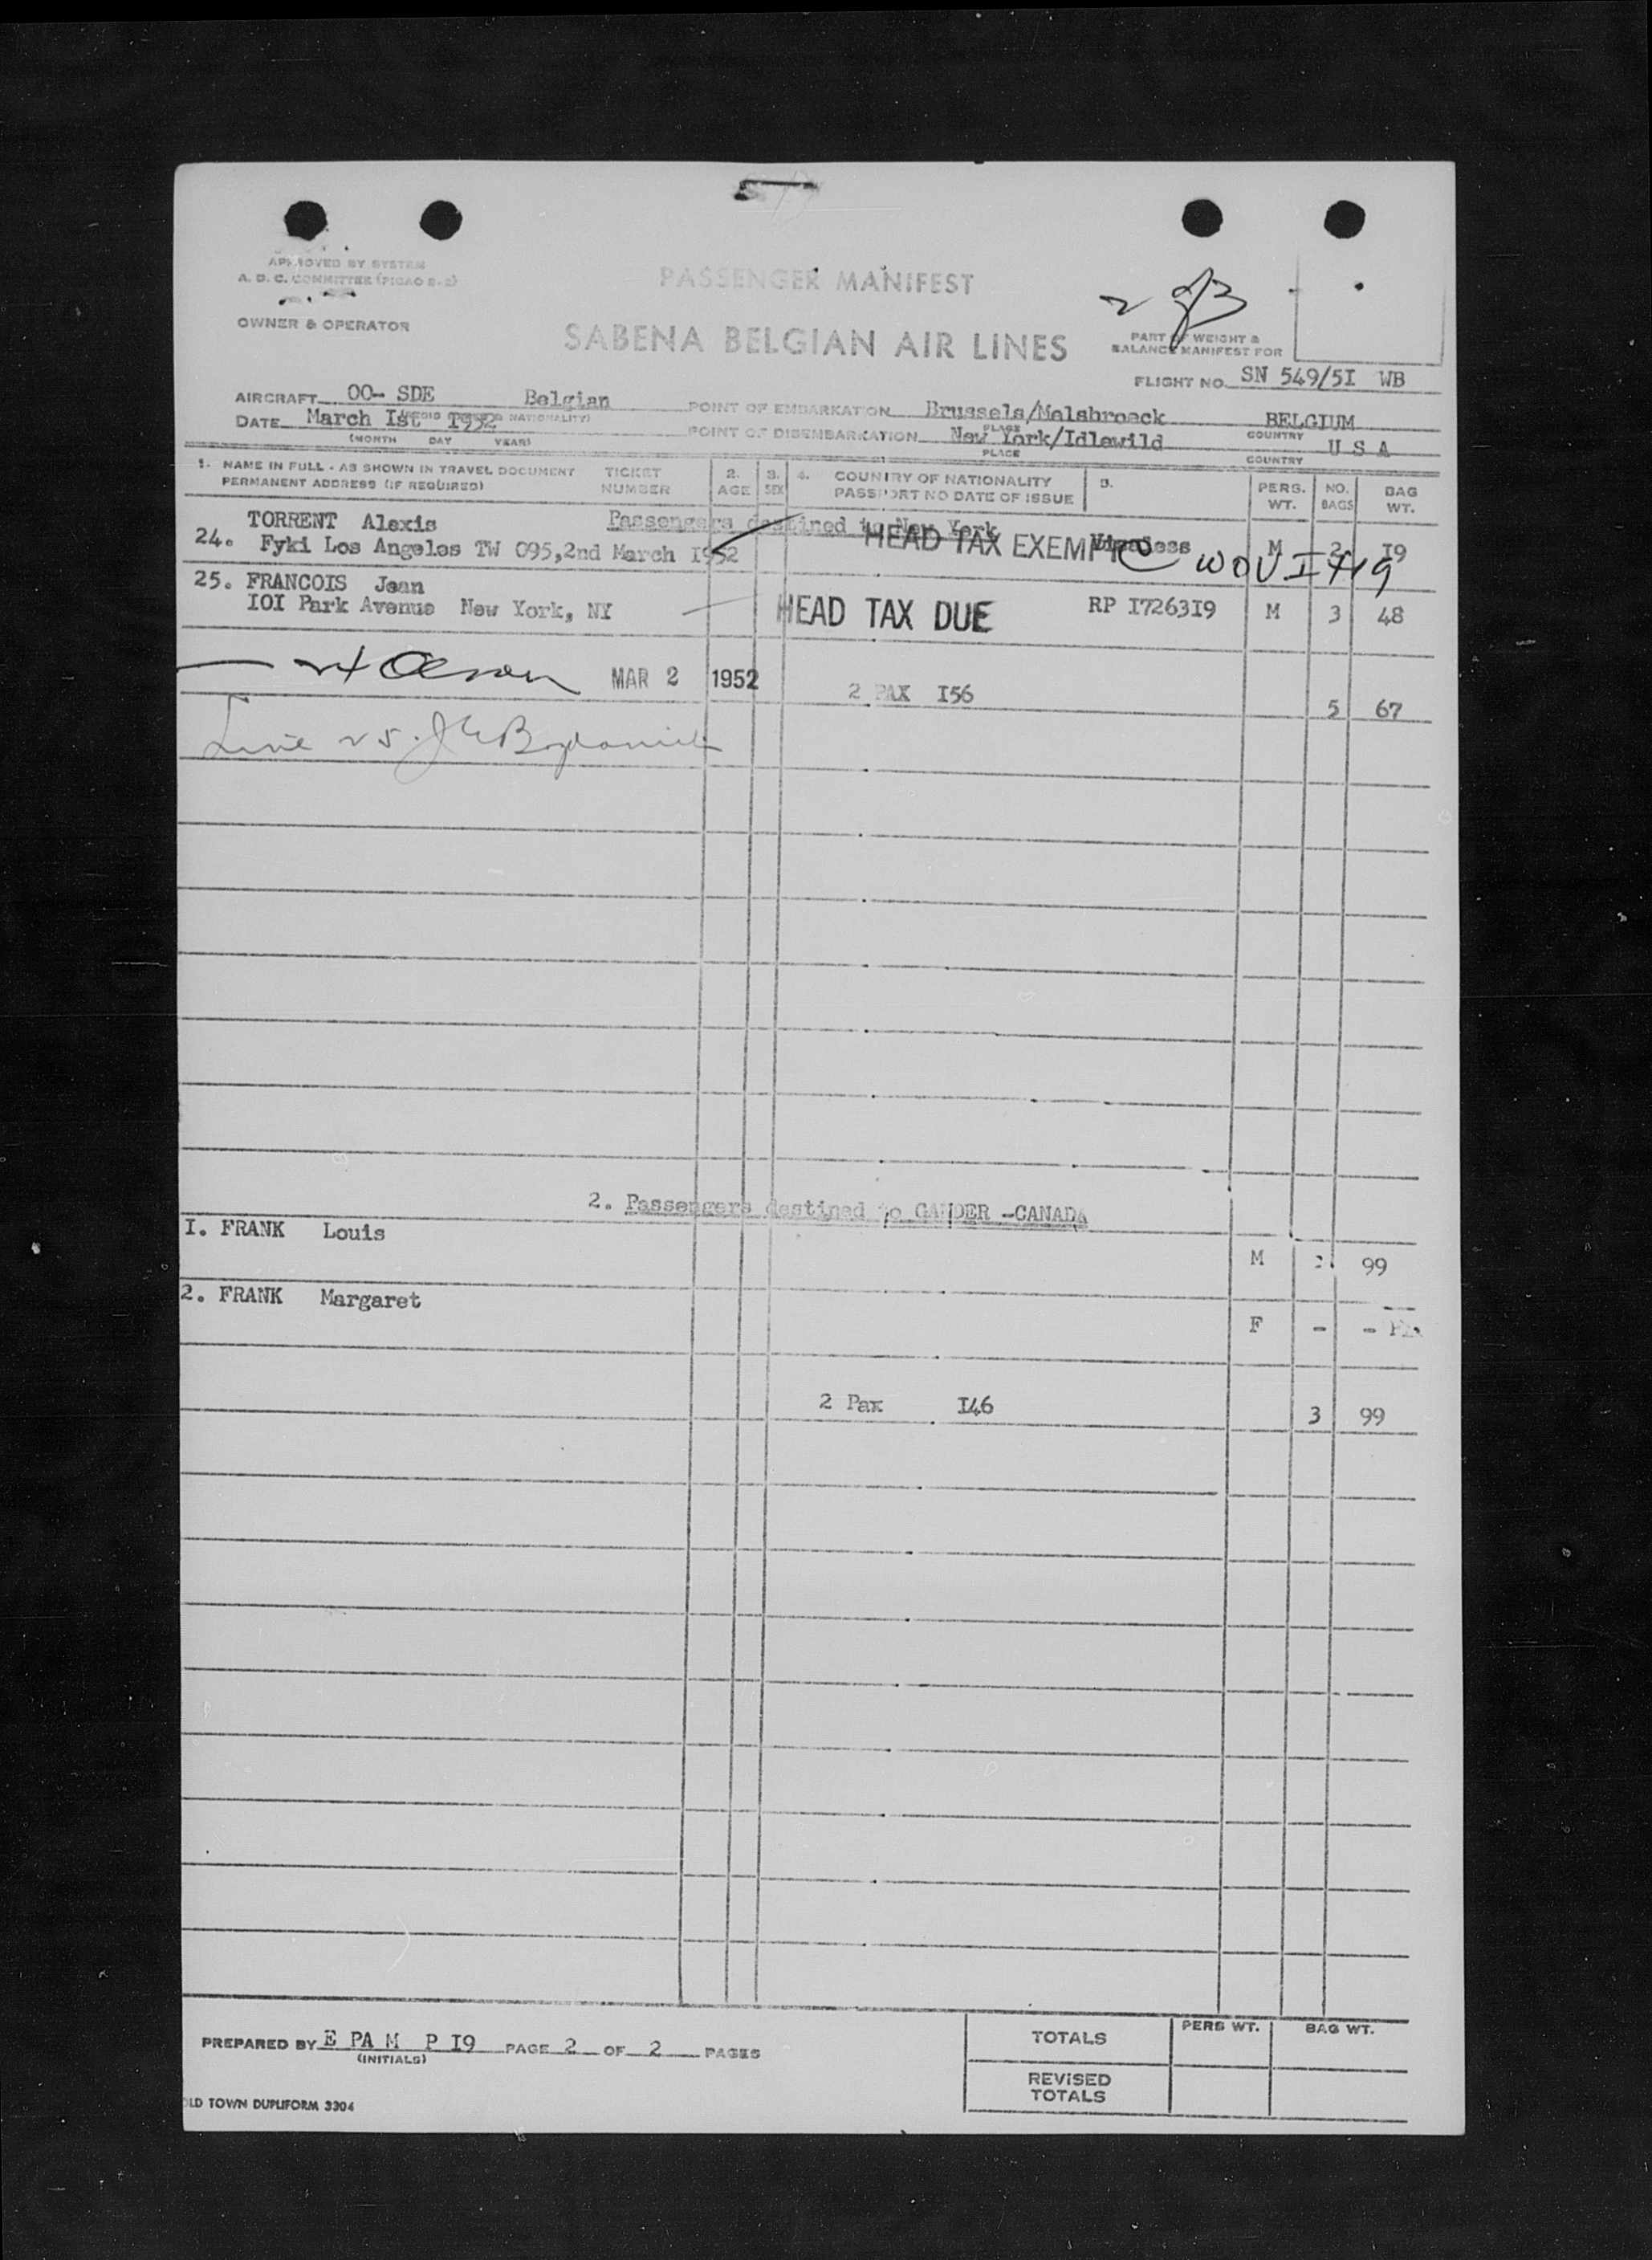 APPROVED BY SYSTEM
A. D. C. COMMITTEE (PICAO 2-2)
OWNER & OPERATOR
PASSENGER MANIFEST
SABENA BELGIAN AIR LINES
2 of 3
PART OF WEIGHT &
BALANCE MANIFEST FOR
FLIGHT NO. SN 549/5I WB
AIRCRAFT OO- SDE Belgian
POINT OF EMBARKATION Brussels/Melsbroeck BELGIUM
DATE March Ist I952
NATIONALITY)
PLACE COUNTRY
(MONTH DAY YEAR)
POINT OF DISEMBARKATION New York/Idlewild U S A
PLACE COUNTRY
1. NAME IN FULL - AS SHOWN IN TRAVEL DOCUMENT TICKET 2. 3. 4. COUNTRY OF NATIONALITY 5. PERS. NO. BAG
PERMANENT ADDRESS (IF REQUIRED) NUMBER AGE SEX PASSPORT NO DATE OF ISSUE WT. BAGS WT.
TORRENT Alexis Passengers destined to New York
24. Fyki Los Angeles TW 095,2nd March I952 HEAD TAX EXEMPT M 2 I9
25. FRANCOIS Jean
IOI Park Avenue New York, NY HEAD TAX DUE RP I7263I9 M 3 48
MAR 2 1952
2 PAX I56 5 67
Line 25.
2. Passengers destined to GANDER -CANADA
I. FRANK Louis
M 99
2. FRANK Margaret
F - -
2 Pax I46 3 99
PREPARED BY E PA M P I9 PAGE 2 OF 2 PAGES
(INITIALS)
TOTALS PERS WT. BAG WT.
REVISED
TOTALS
OLD TOWN DUPLIFORM 3304